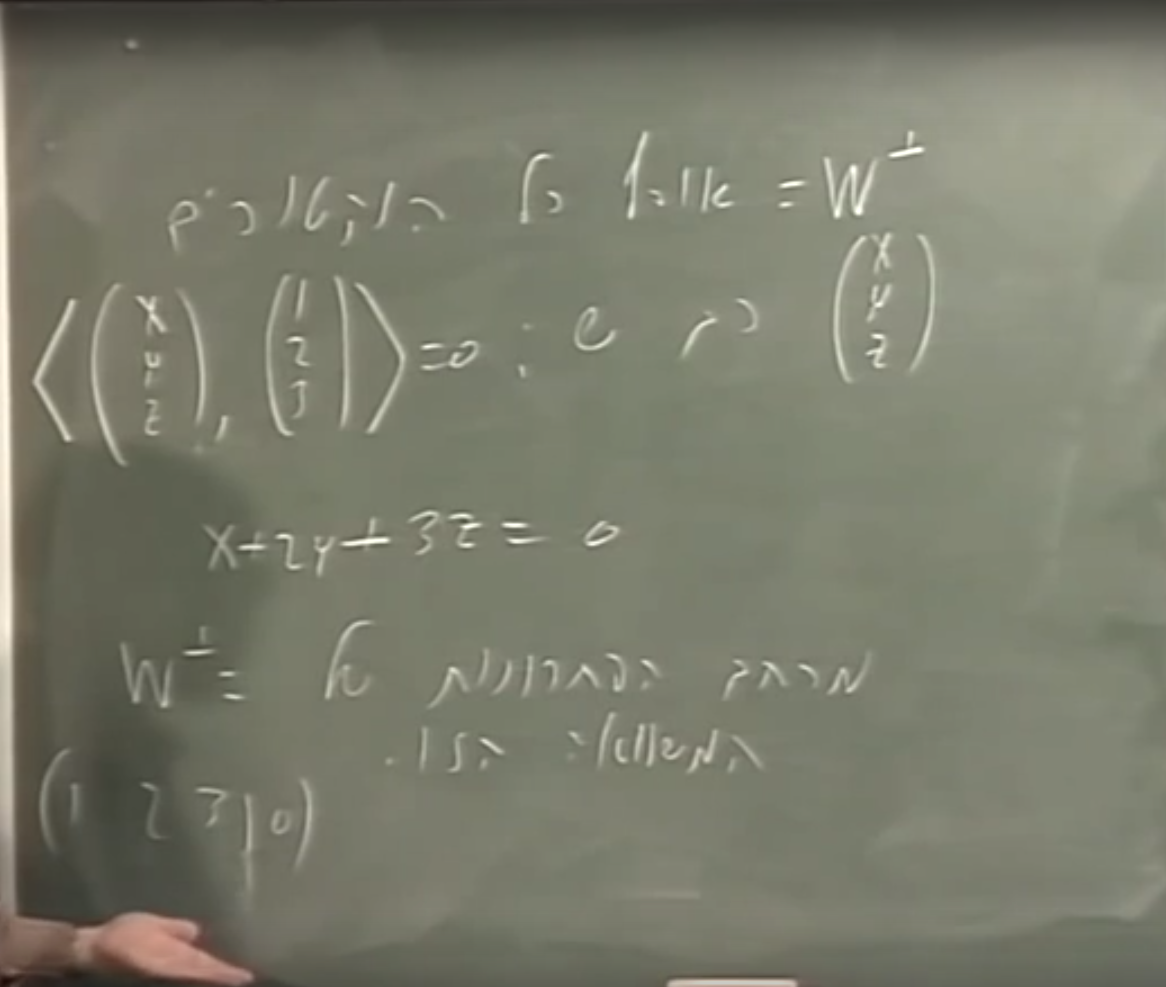 W^⊥ = אוסף כל הוקטורים
(x y z) כך ש: <(x y z), (1 2 3)> = 0
x+2y+3z = 0
W^⊥ = מרחב הפתרונות של
המשוואה הזו.
(1 2 3 | 0)